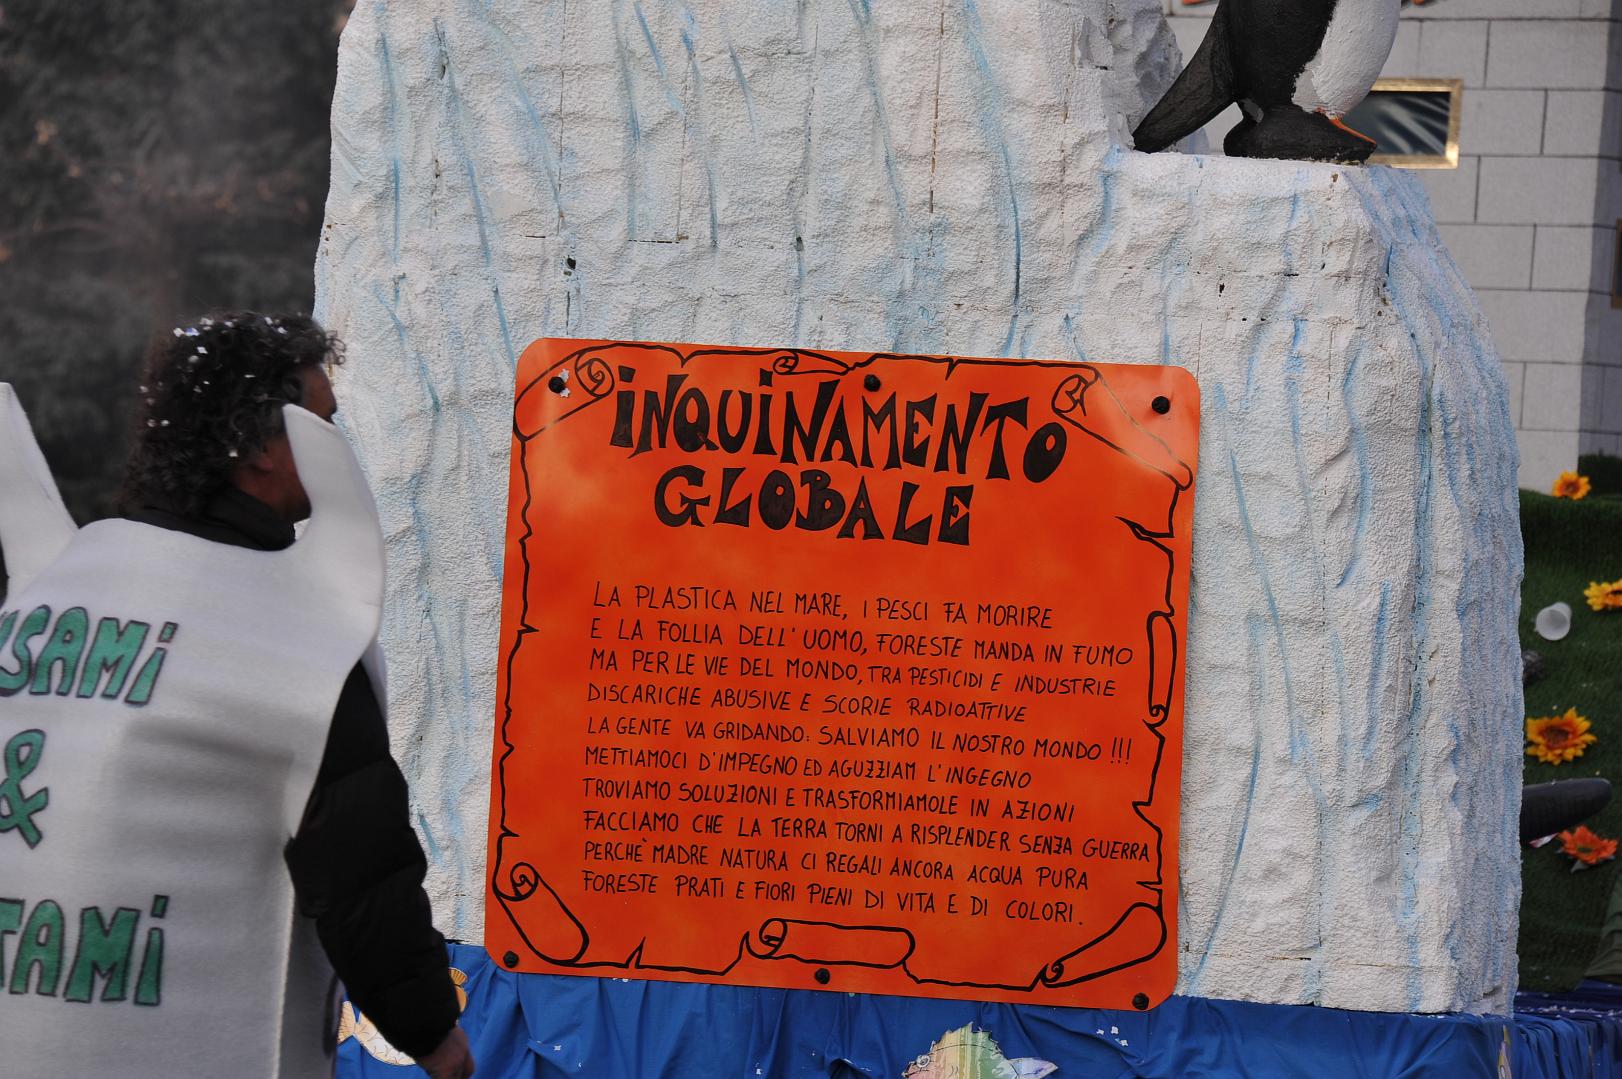 INQUINAMENTO
GLOBALE
LA PLASTICA NEL MARE, I PESCI FA MORIRE
E LA FOLLIA DELL'UOMO, FORESTE MANDA IN FUMO
MA PER LE VIE DEL MONDO, TRA PESTICIDI E INDUSTRIE
DISCARICHE ABUSIVE E SCORIE RADIOATTIVE
LA GENTE VA GRIDANDO: SALVIAMO IL NOSTRO MONDO !!!
METTIAMOCI D'IMPEGNO ED AGUZZIAM L'INGEGNO
TROVIAMO SOLUZIONI E TRASFORMIAMOLE IN AZIONI
FACCIAMO CHE LA TERRA TORNI A RISPLENDER SENZA GUERRA
PERCHÈ MADRE NATURA CI REGALI ANCORA ACQUA PURA
FORESTE PRATI E FIORI PIENI DI VITA E DI COLORI.
&